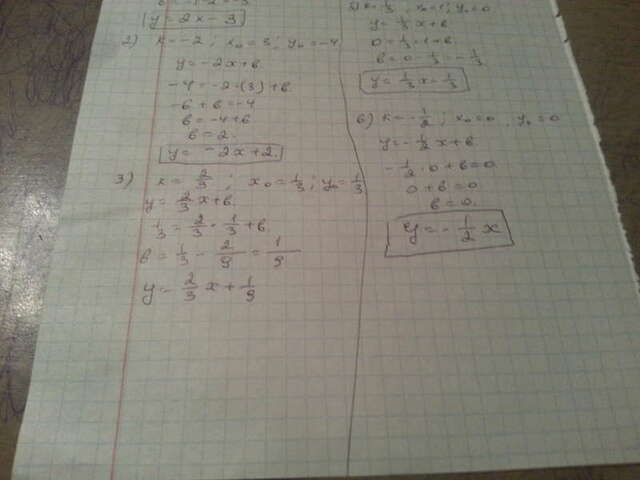 y = 2x - 3
2) k = -2 ; x₀ = 3 ; y₀ = -4
y = -2x + b
-4 = -2·(3) + b
-6 + b = -4
b = -4 + 6
b = 2.
y = -2x + 2.
3) k = 2/3 ; x₀ = 1/3 ; y₀ = 1/3
y = 2/3 x + b.
1/3 = 2/3 · 1/3 + b.
b = 1/3 - 2/9 = 1/9
y = 2/3 x + 1/9
y = 1/3 x + b
0 = 1/3 · 1 + b.
b = 0 - 1/3 = - 1/3
y = 1/3 x - 1/3
6) k = - 1/2 ; x₀ = 0 , y₀ = 0
y = - 1/2 x + b
- 1/2 · 0 + b = 0
0 + b = 0
b = 0.
y = - 1/2 x